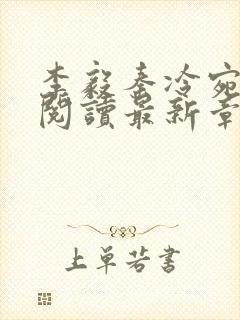 李毅秦冷宛
閱讀最新章
上單若書